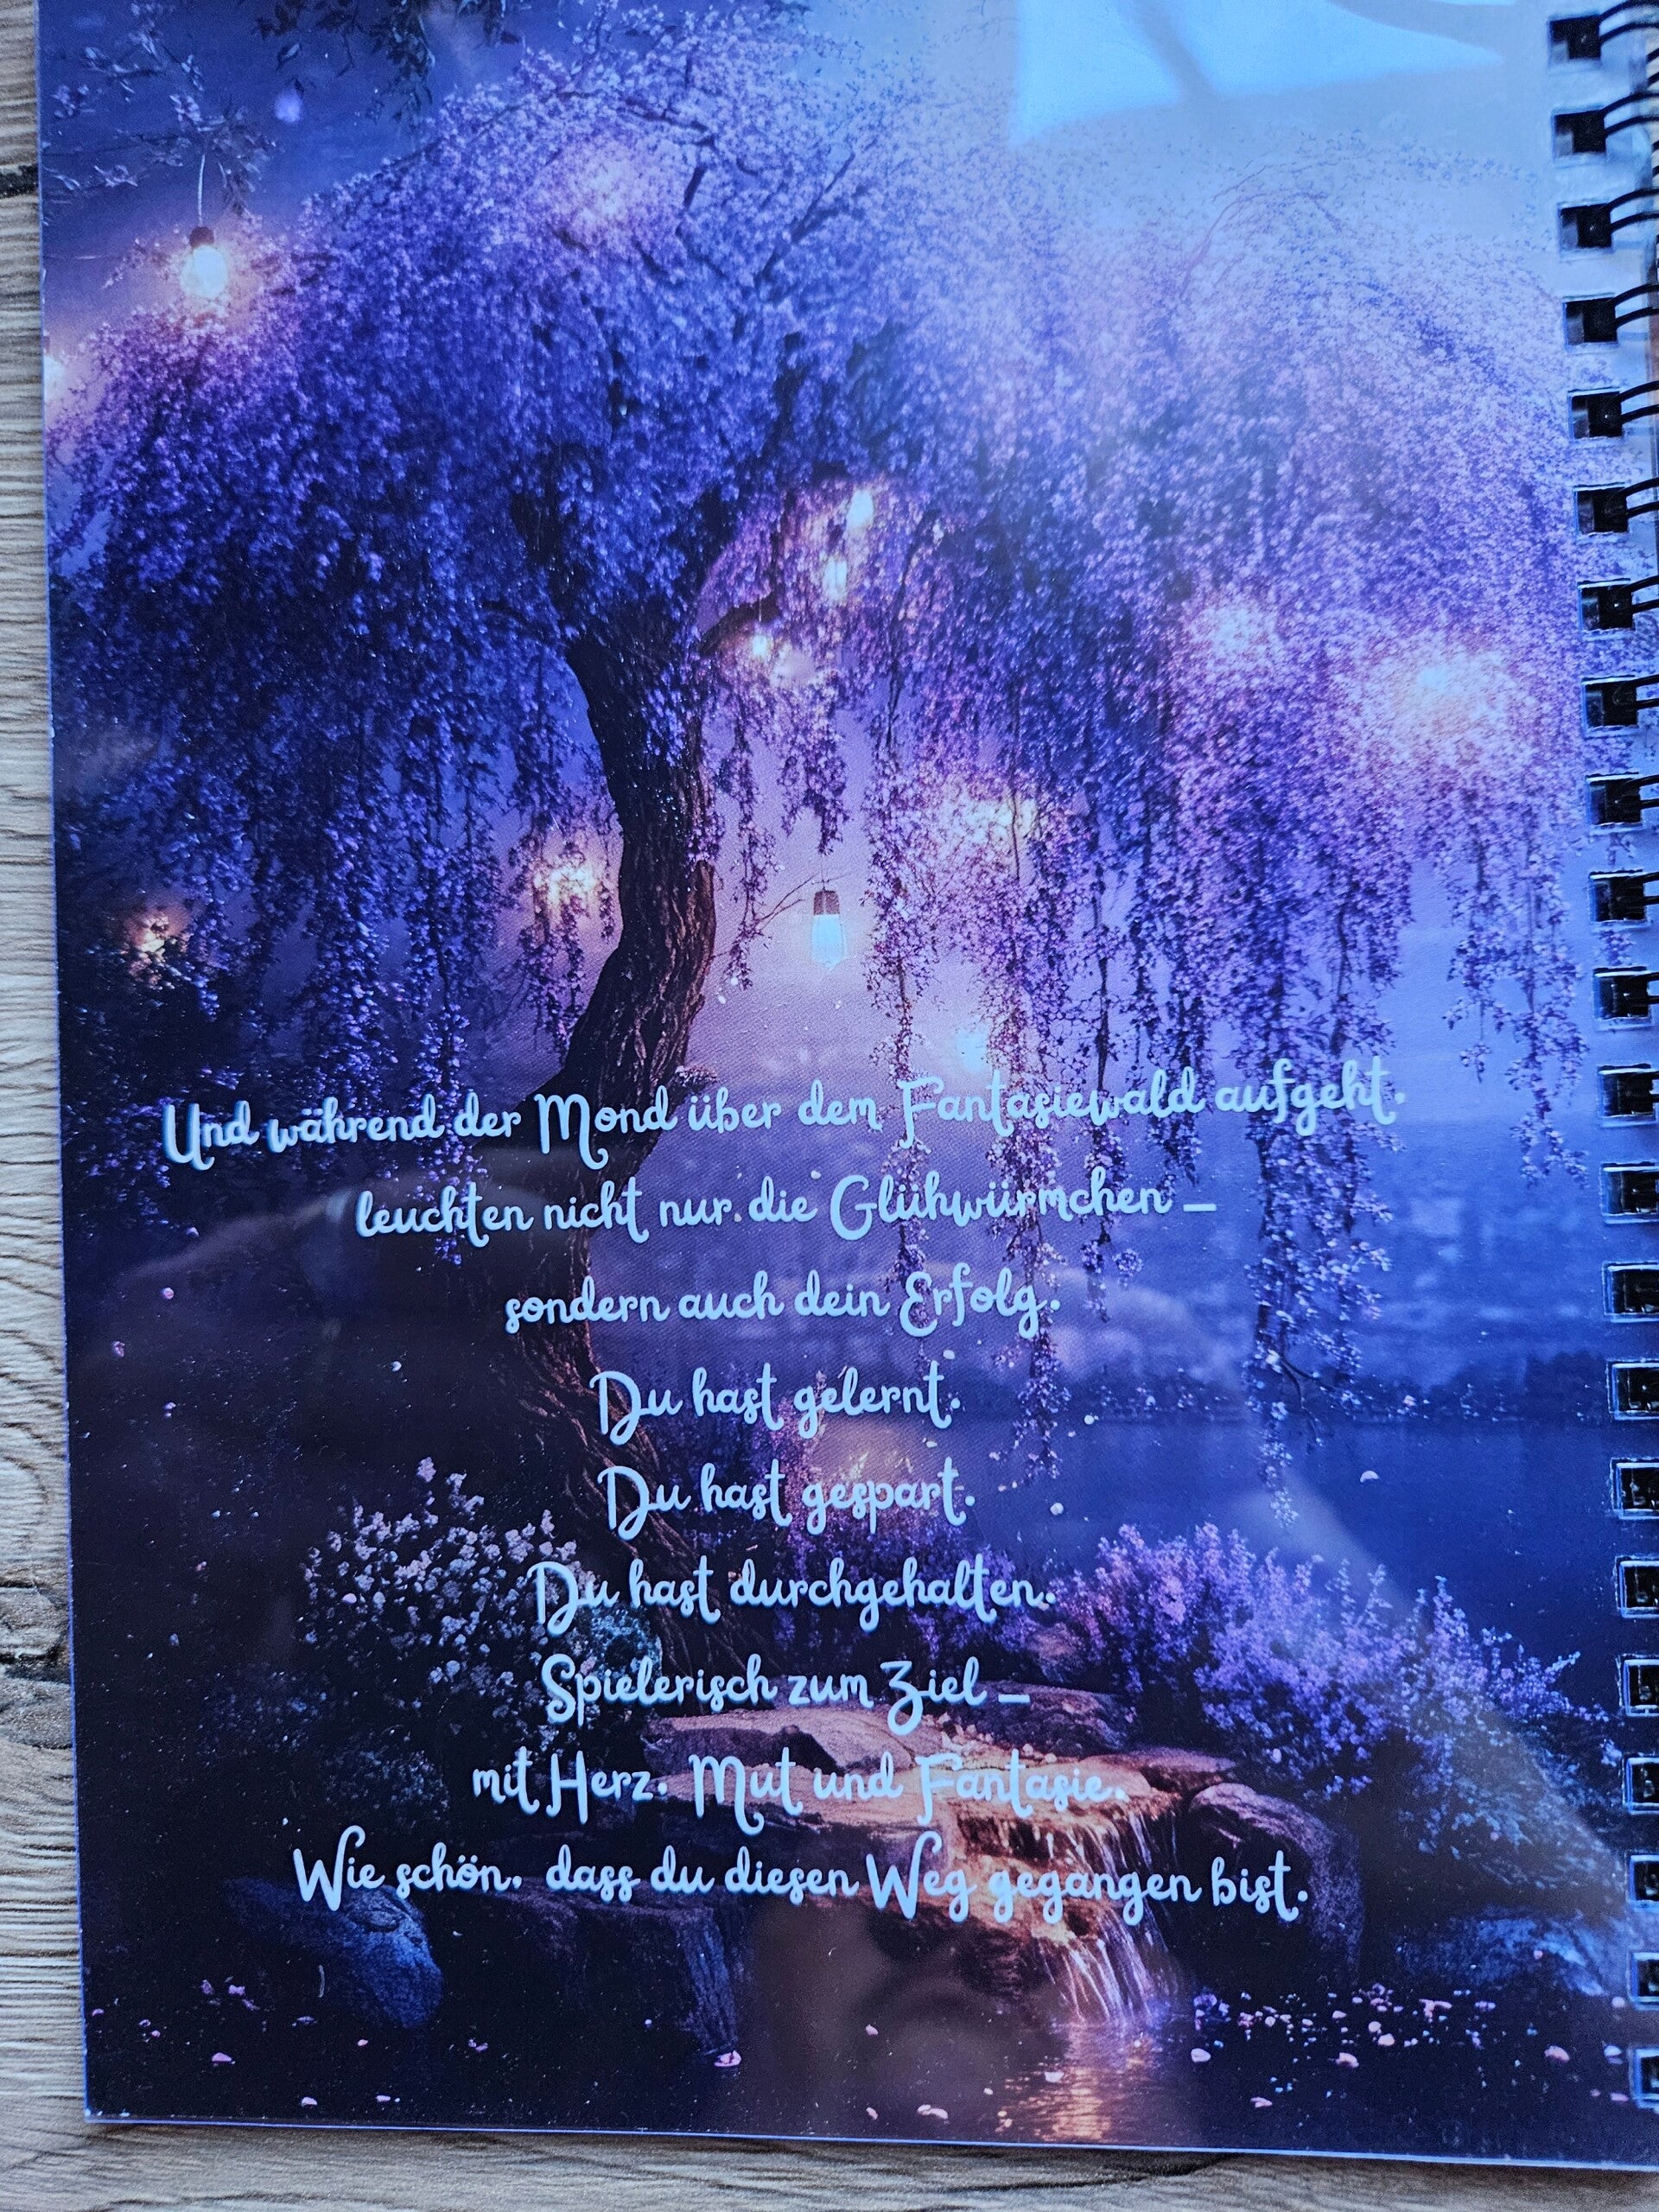 Und während der Mond über dem Fantasiewald aufgeht.
leuchten nicht nur die Glühwürmchen –
sondern auch dein Erfolg.
Du hast gelernt.
Du hast gespart.
Du hast durchgehalten.
Spielerisch zum Ziel –
mit Herz. Mut und Fantasie.
Wie schön. dass du diesen Weg gegangen bist.